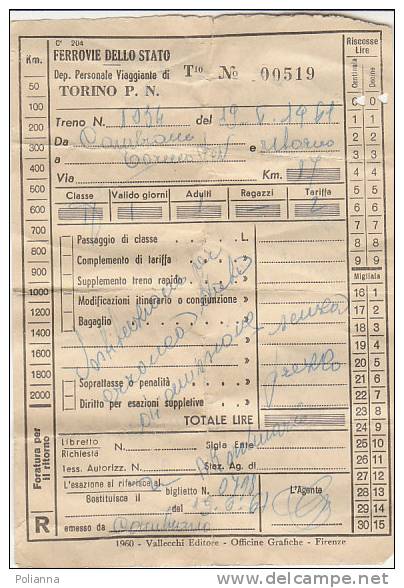 C' 204
FERROVIE DELLO STATO
Dep. Personale Viaggiante di
TORINO P. N.
T to No 00519
Treno N. 1934 del 19.5.1961
Da Cambiano
a e ritorno
Via Km. 17
Classe Valido giorni Adulti Ragazzi Tariffa
Passaggio di classe . . . . L
Complemento di tariffa . . .
Supplemento treno rapido . .
Modificazioni itinerario o congiunzione
Bagaglio . . . .
senza
prezzo
Soprattassa o penalità . . .
Diritto per esazioni suppletive
TOTALE LIRE
Libretto
Richiesta N. Sigla Ente
Tess. Autorizz. N. Staz. Ag. di
L'esazione si riferisce al
Sostituisce il biglietto N.
del
emesso da Cambiano
L'Agente
1960 - Vallecchi Editore - Officine Grafiche - Firenze
Km.
50
100
150
200
250
300
350
400
500
600
700
800
900
1000
1200
1400
1600
1800
2000
Foratura per il ritorno
R
Riscosse Lire
Centinaia Decine
0 0
1 1
2 2
3 3
4 4
5 5
6 6
7 7
8 8
9 9
Migliaia
16 1
17 2
18 3
19 4
20 5
21 6
22 7
23 8
24 9
25 10
26 11
27 12
28 13
29 14
30 15
Polianna
www.delcampe.net